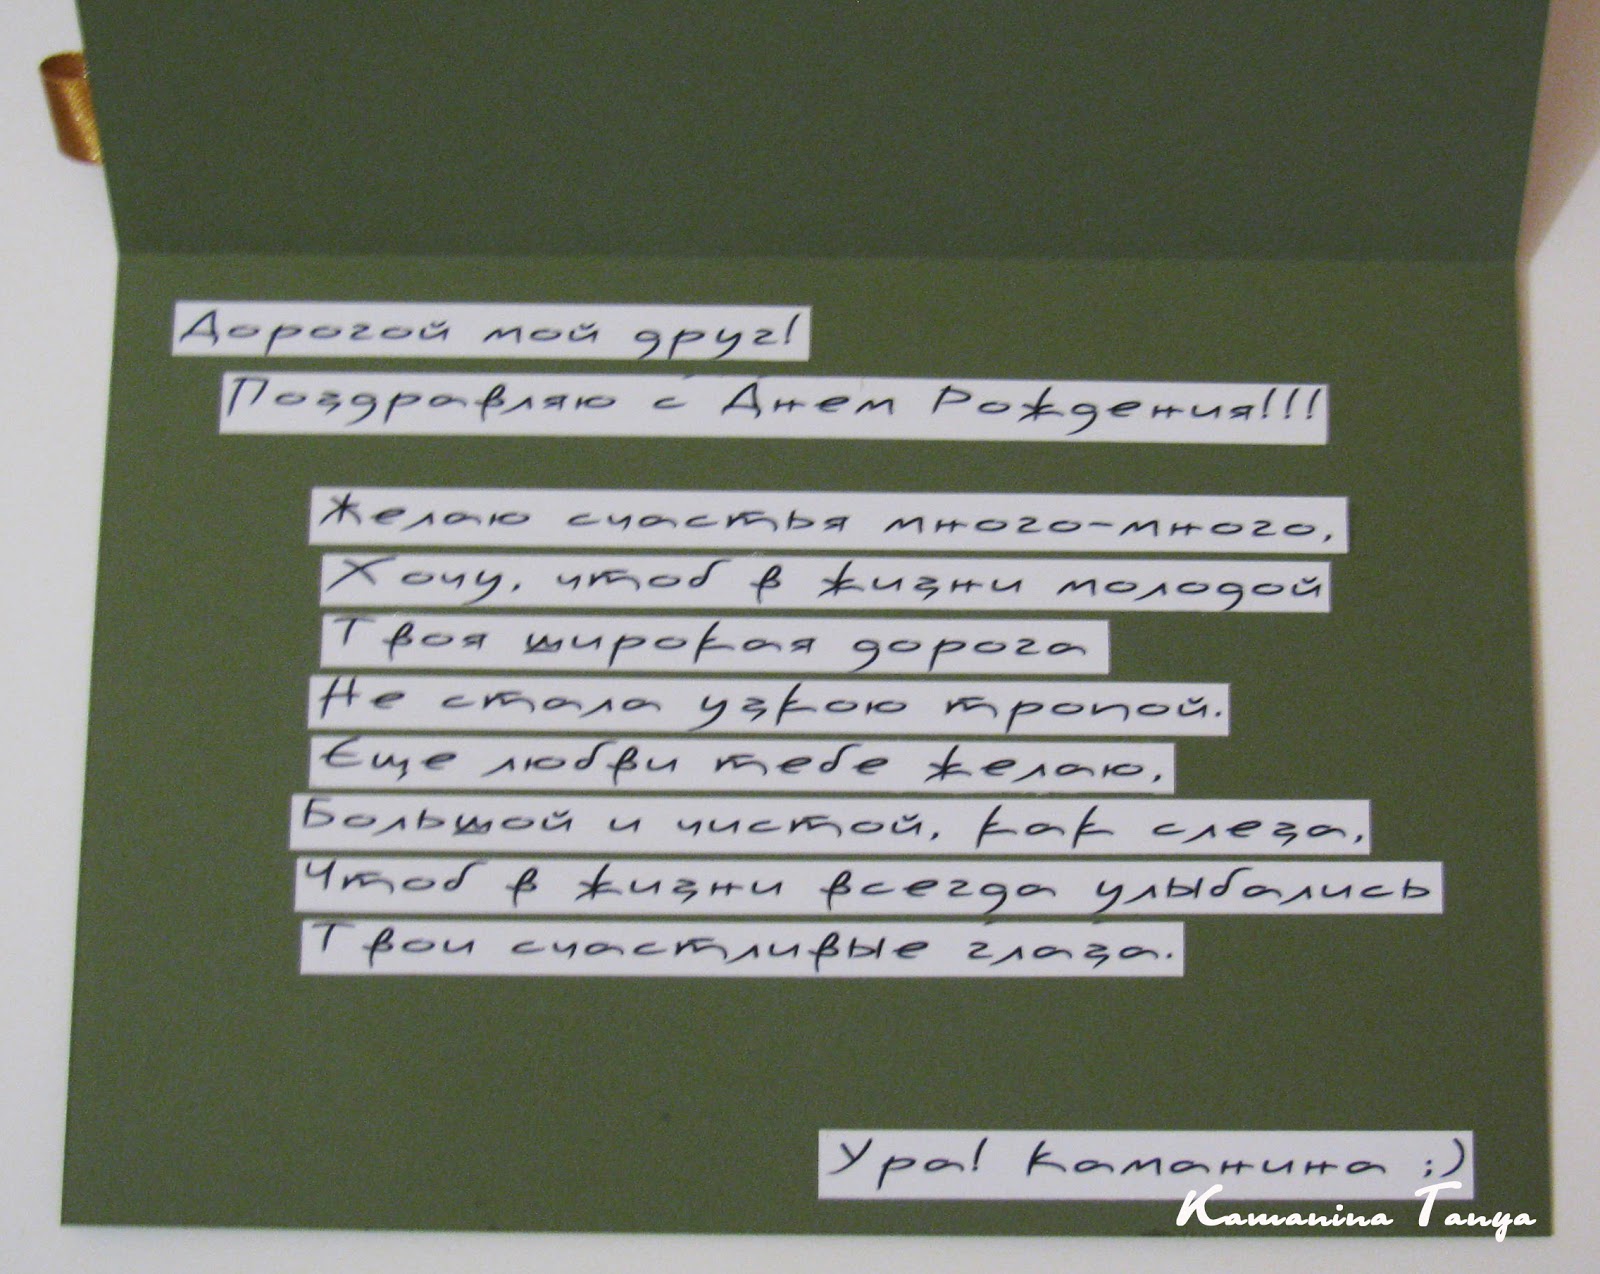 Дорогой мой друг!
Поздравляю с Днем Рождения!!!
Желаю счастья много-много,
Хочу, чтоб в жизни молодой
Твоя широкая дорога
Не стала узкою тропой.
Еще любви тебе желаю,
Большой и чистой, как слеза,
Чтоб в жизни всегда улыбались
Твои счастливые глаза.
Ура! Каманина ;)
Kamanina Tanya